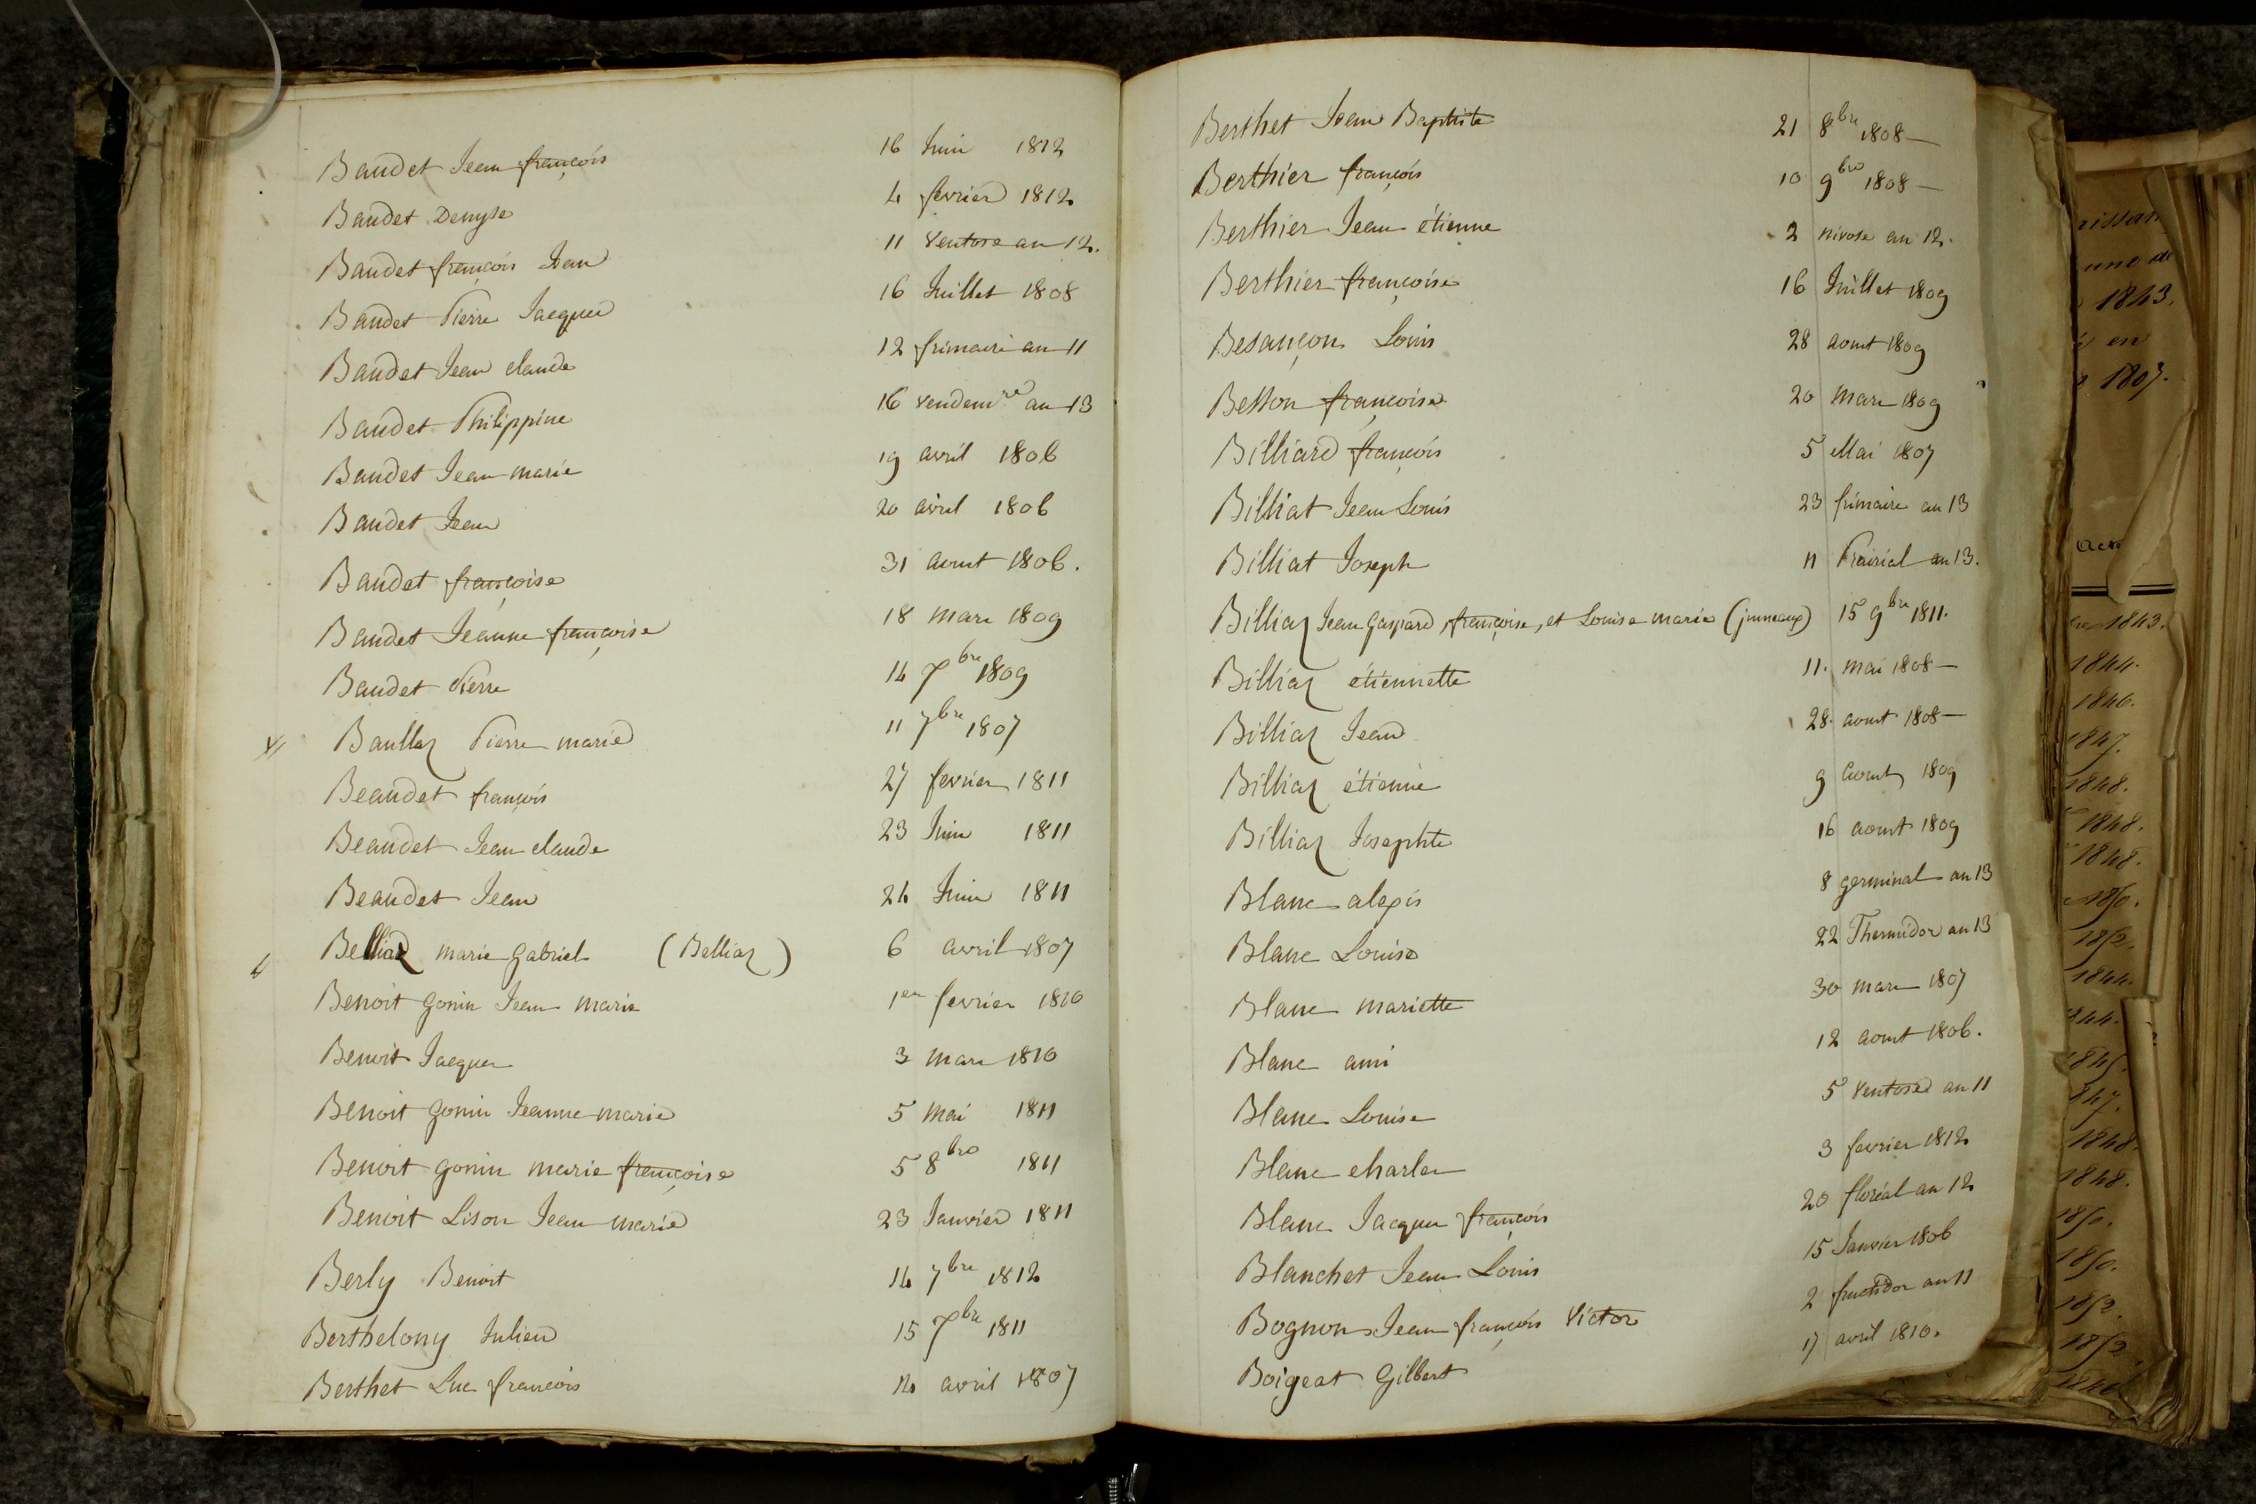 Baudet Jean françois 16 Juin 1812
Baudet Denyse 4 fevrier 1812
Baudet françois Jean 11 ventose an 12.
Baudet Pierre Jacques 16 Juillet 1808
Baudet Jean claude 12 frimaire an 11
Baudet Philippine 16 vendemre an 13
Baudet Jean marie 19 avril 1806
Baudet Jean 20 avril 1806
Baudet françoise 31 aout 1806.
Baudet Jeanne françoise 18 mars 1809
Baudet Pierre 14 7bre 1809
Baullaz Pierre marie 11 7bre 1807
Beaudet françois 27 fevrier 1811
Beaudet Jean claude 23 Juin 1811
Beaudet Jean 24 Juin 1811
Belliaz marie gabriel (Belliaz) 6 avril 1807
Benoit gonin Jean marie 1er fevrier 1810
Benoit Jacques 3 mars 1810
Benoit gonin Jeanne marie 5 mai 1811
Benoit gonin marie françoise 5 8bre 1811
Benoit Lison Jean marie 23 Janvier 1811
Berly Benoit 14 7bre 1812
Berthelony Julien 15 7bre 1811
Berthet Luc françois 14 avril 1807
Berthet Jean Baptiste 21 8bre 1808
Berthier françois 10 9bre 1808
Berthier Jean étienne 2 nivose an 12.
Berthier françoise 16 Juillet 1809
Besançon Louis 28 aout 1809
Besson françoise 20 mars 1809
Billiard françois 5 Mai 1807
Billiat Jean Louis 23 frimaire an 13
Billiat Joseph 11 Prairial an 13.
Billiaz Jean gaspard, françoise, et Louise marie (jumeaux) 15 9bre 1811.
Billiaz étiennette 11. mai 1808
Billiaz Jean 28. aout 1808
Billiaz étienne 9 aout 1809
Billiaz Josephte 16 aout 1809
Blanc alexis 8 germinal an 13
Blanc Louise 22 Thermidor an 13
Blanc mariette 30 mars 1807
Blanc ami 12 aout 1806.
Blanc Louise 5 ventose an 11
Blanc charles 3 fevrier 1812
Blanc Jacques françois 20 floréal an 12
Blanchet Jean Louis 15 Janvier 1806
Bognon Jean françois Victor 2 fructidor an 11
Boigeat Gilbert 17 avril 1810.
1843.
en
1807.
1843.
1844.
1846.
1847.
1848.
1848.
1848.
1844.
1848.
1848.